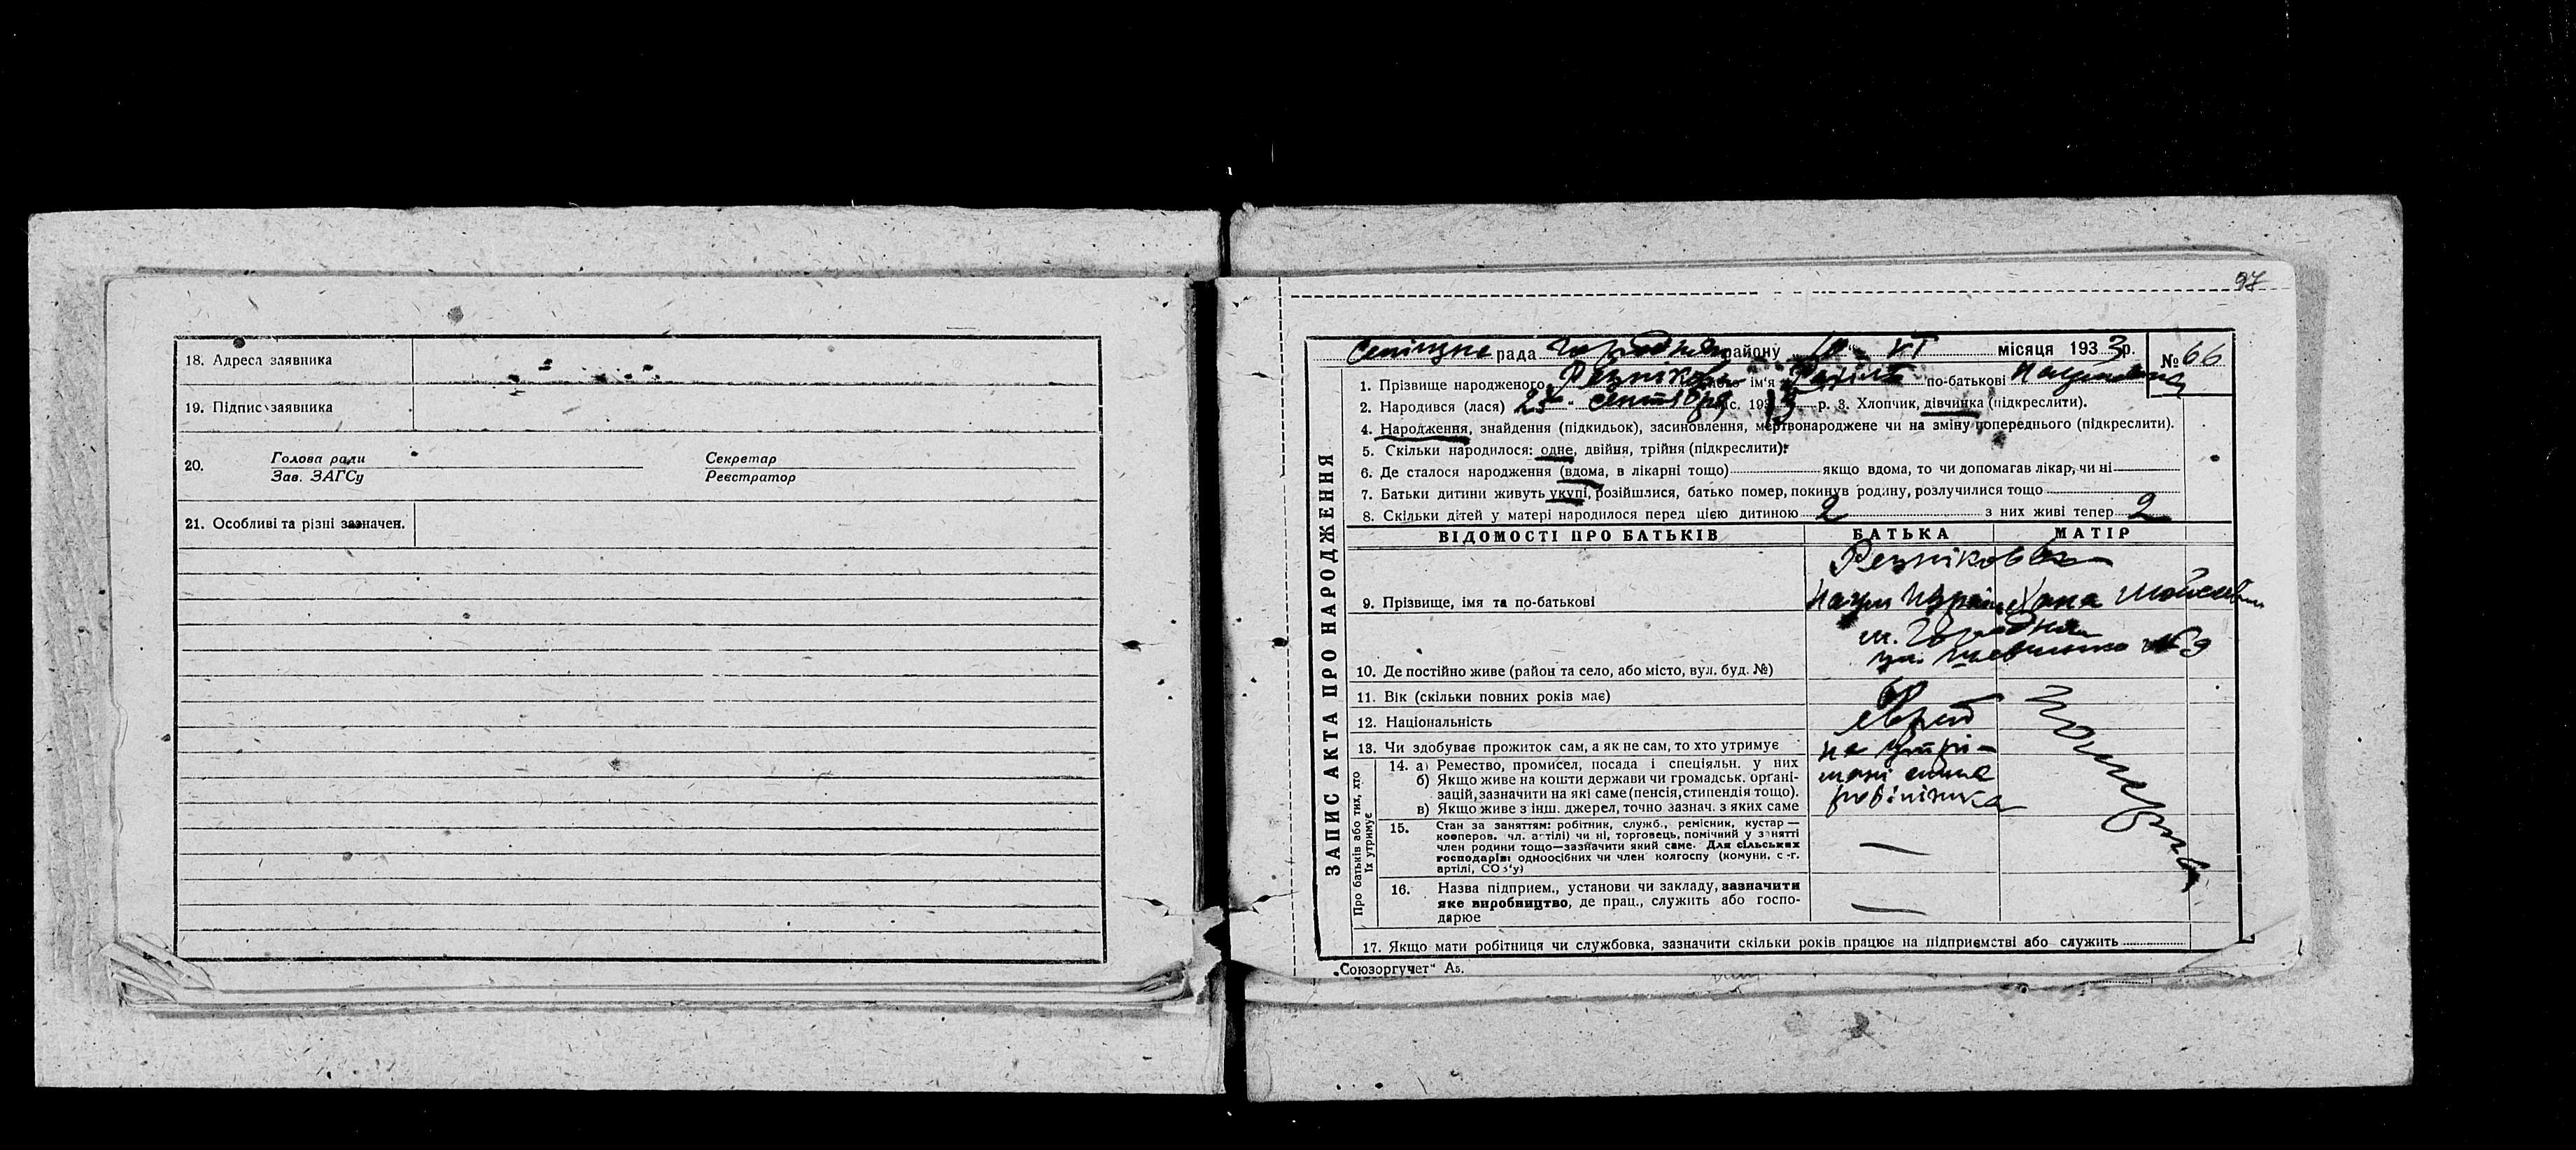 18. Адреса заявника
19. Підпис заявника
20. Голова ради Секретар
Зав. ЗАГСу Реєстратор
21. Особливі та різні зазначен.
97
ЗАПИС АКТА ПРО НАРОДЖЕННЯ
рада району 10 " VI місяця 1933 р. № 66
1. Прізвище народженого Резнікова ім'я по-батькові Наумовна
2. Народився (лася) 25 - сентября міс. 1913 р. 3. Хлопчик, дівчинка (підкреслити).
4. Народження, знайдення (підкидьок), засиновлення, мертвонароджене чи на зміну попереднього (підкреслити).
5. Скільки народилося: одне, двійня, трійня (підкреслити).
6. Де сталося народження (вдома, в лікарні тощо) якщо вдома, то чи допомагав лікар, чи ні
7. Батьки дитини живуть укупі, розійшлися, батько помер, покинув родину, розлучилися тощо
8. Скільки дітей у матері народилося перед цією дитиною 2 з них живі тепер 2
ВІДОМОСТІ ПРО БАТЬКІВ БАТЬКА МАТІР
Резнікови
9. Прізвище, імя та по-батькові Наум Хана
м. Городня
10. Де постійно живе (район та село, або місто, вул. буд. №) вул. Шевченка № 9
11. Вік (скільки повних років має)
12. Національність еврей
13. Чи здобуває прожиток сам, а як не сам, то хто утримує на утрі-
14. а) Ремество, промисел, посада і спеціяльн. у них
б) Якщо живе на кошти держави чи громадськ. органі-
зацій, зазначити на які саме (пенсія, стипендія тощо).
в) Якщо живе з інш. джерел, точно зазнач. з яких саме
мані сина
робітника
померла
Про батьків або тих, хто
їх утримує
15. Стан за заняттям: робітник, служб., ремісник, кустар —
кооперов. чл. артілі) чи ні, торговець, помічний у занятті
член родини тощо—зазначити який саме. Для сільських
господарів: одноосібних чи член колгоспу (комуни, с.-г.
артілі, СОЗ'у)
16. Назва підприєм., установи чи закладу, зазначити
яке виробництво, де прац., служить або госпо-
дарює
17. Якщо мати робітниця чи службовка, зазначити скільки років працює на підприємстві або служить
„Союзоргучет“ А5.